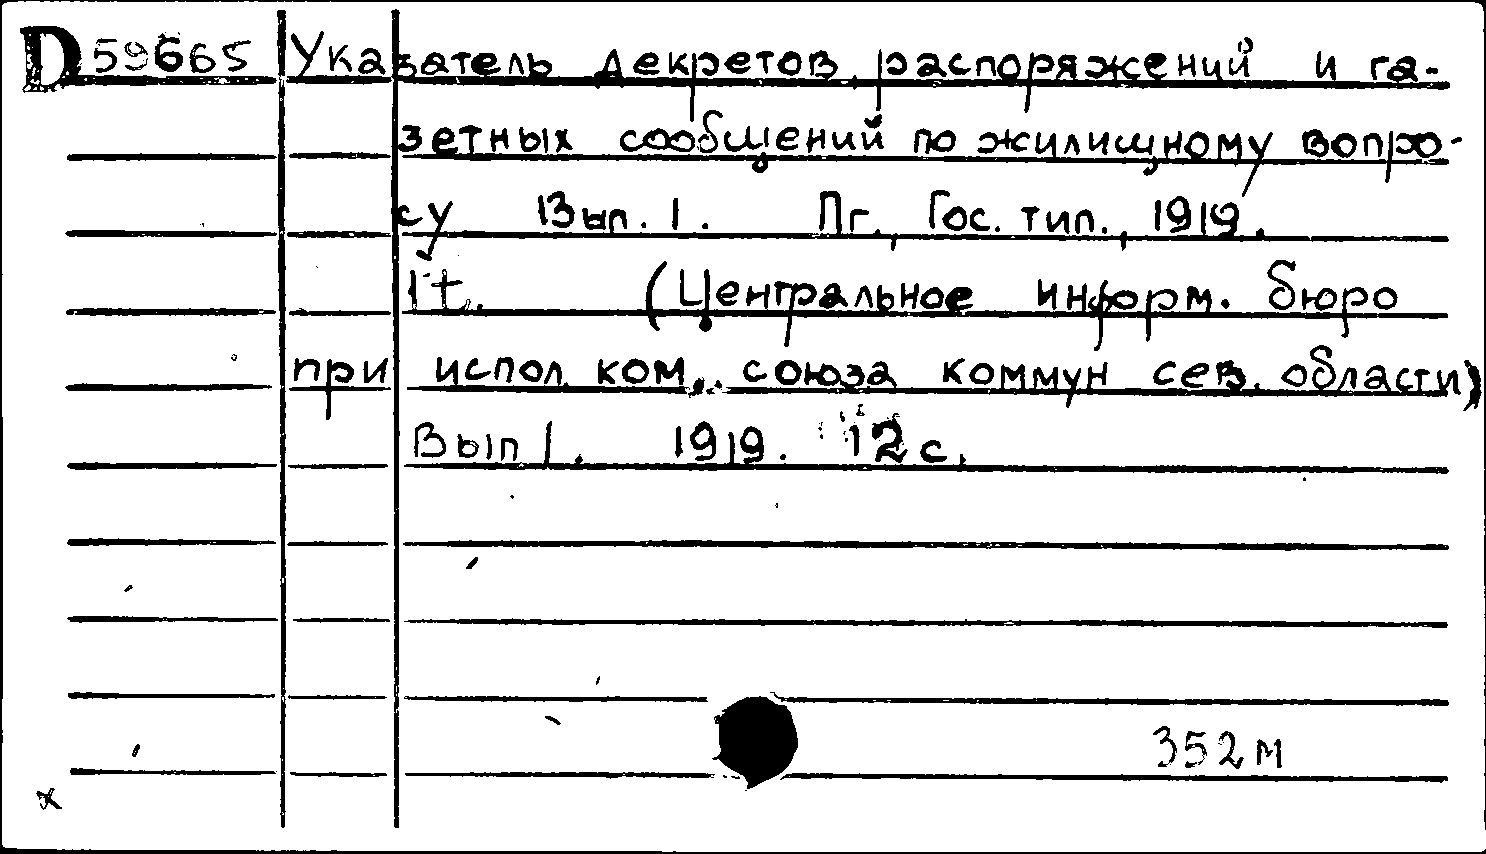 D 59665 Указатель декретов, распоряжений и га-
зетных сообщений по жилищному вопро-
су Вып. 1. Пг., Гос. тип., 1919.
1 t. (Центральное информ. бюро
при испол. ком. союза коммун сев. области)
Вып 1. 1919. 12 с.
352м
x